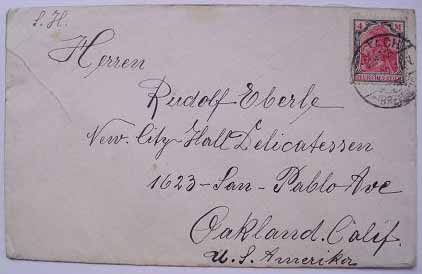 S. H.
4 M
Herren
Rudolf Eberle
New. City-Hall Delicatessen
1623-San-Pablo Ave
Oakland. Calif.
U. S. Amerika